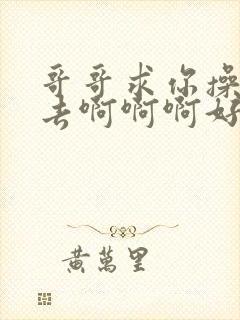 哥哥求你操
去啊啊啊好
黄萬里